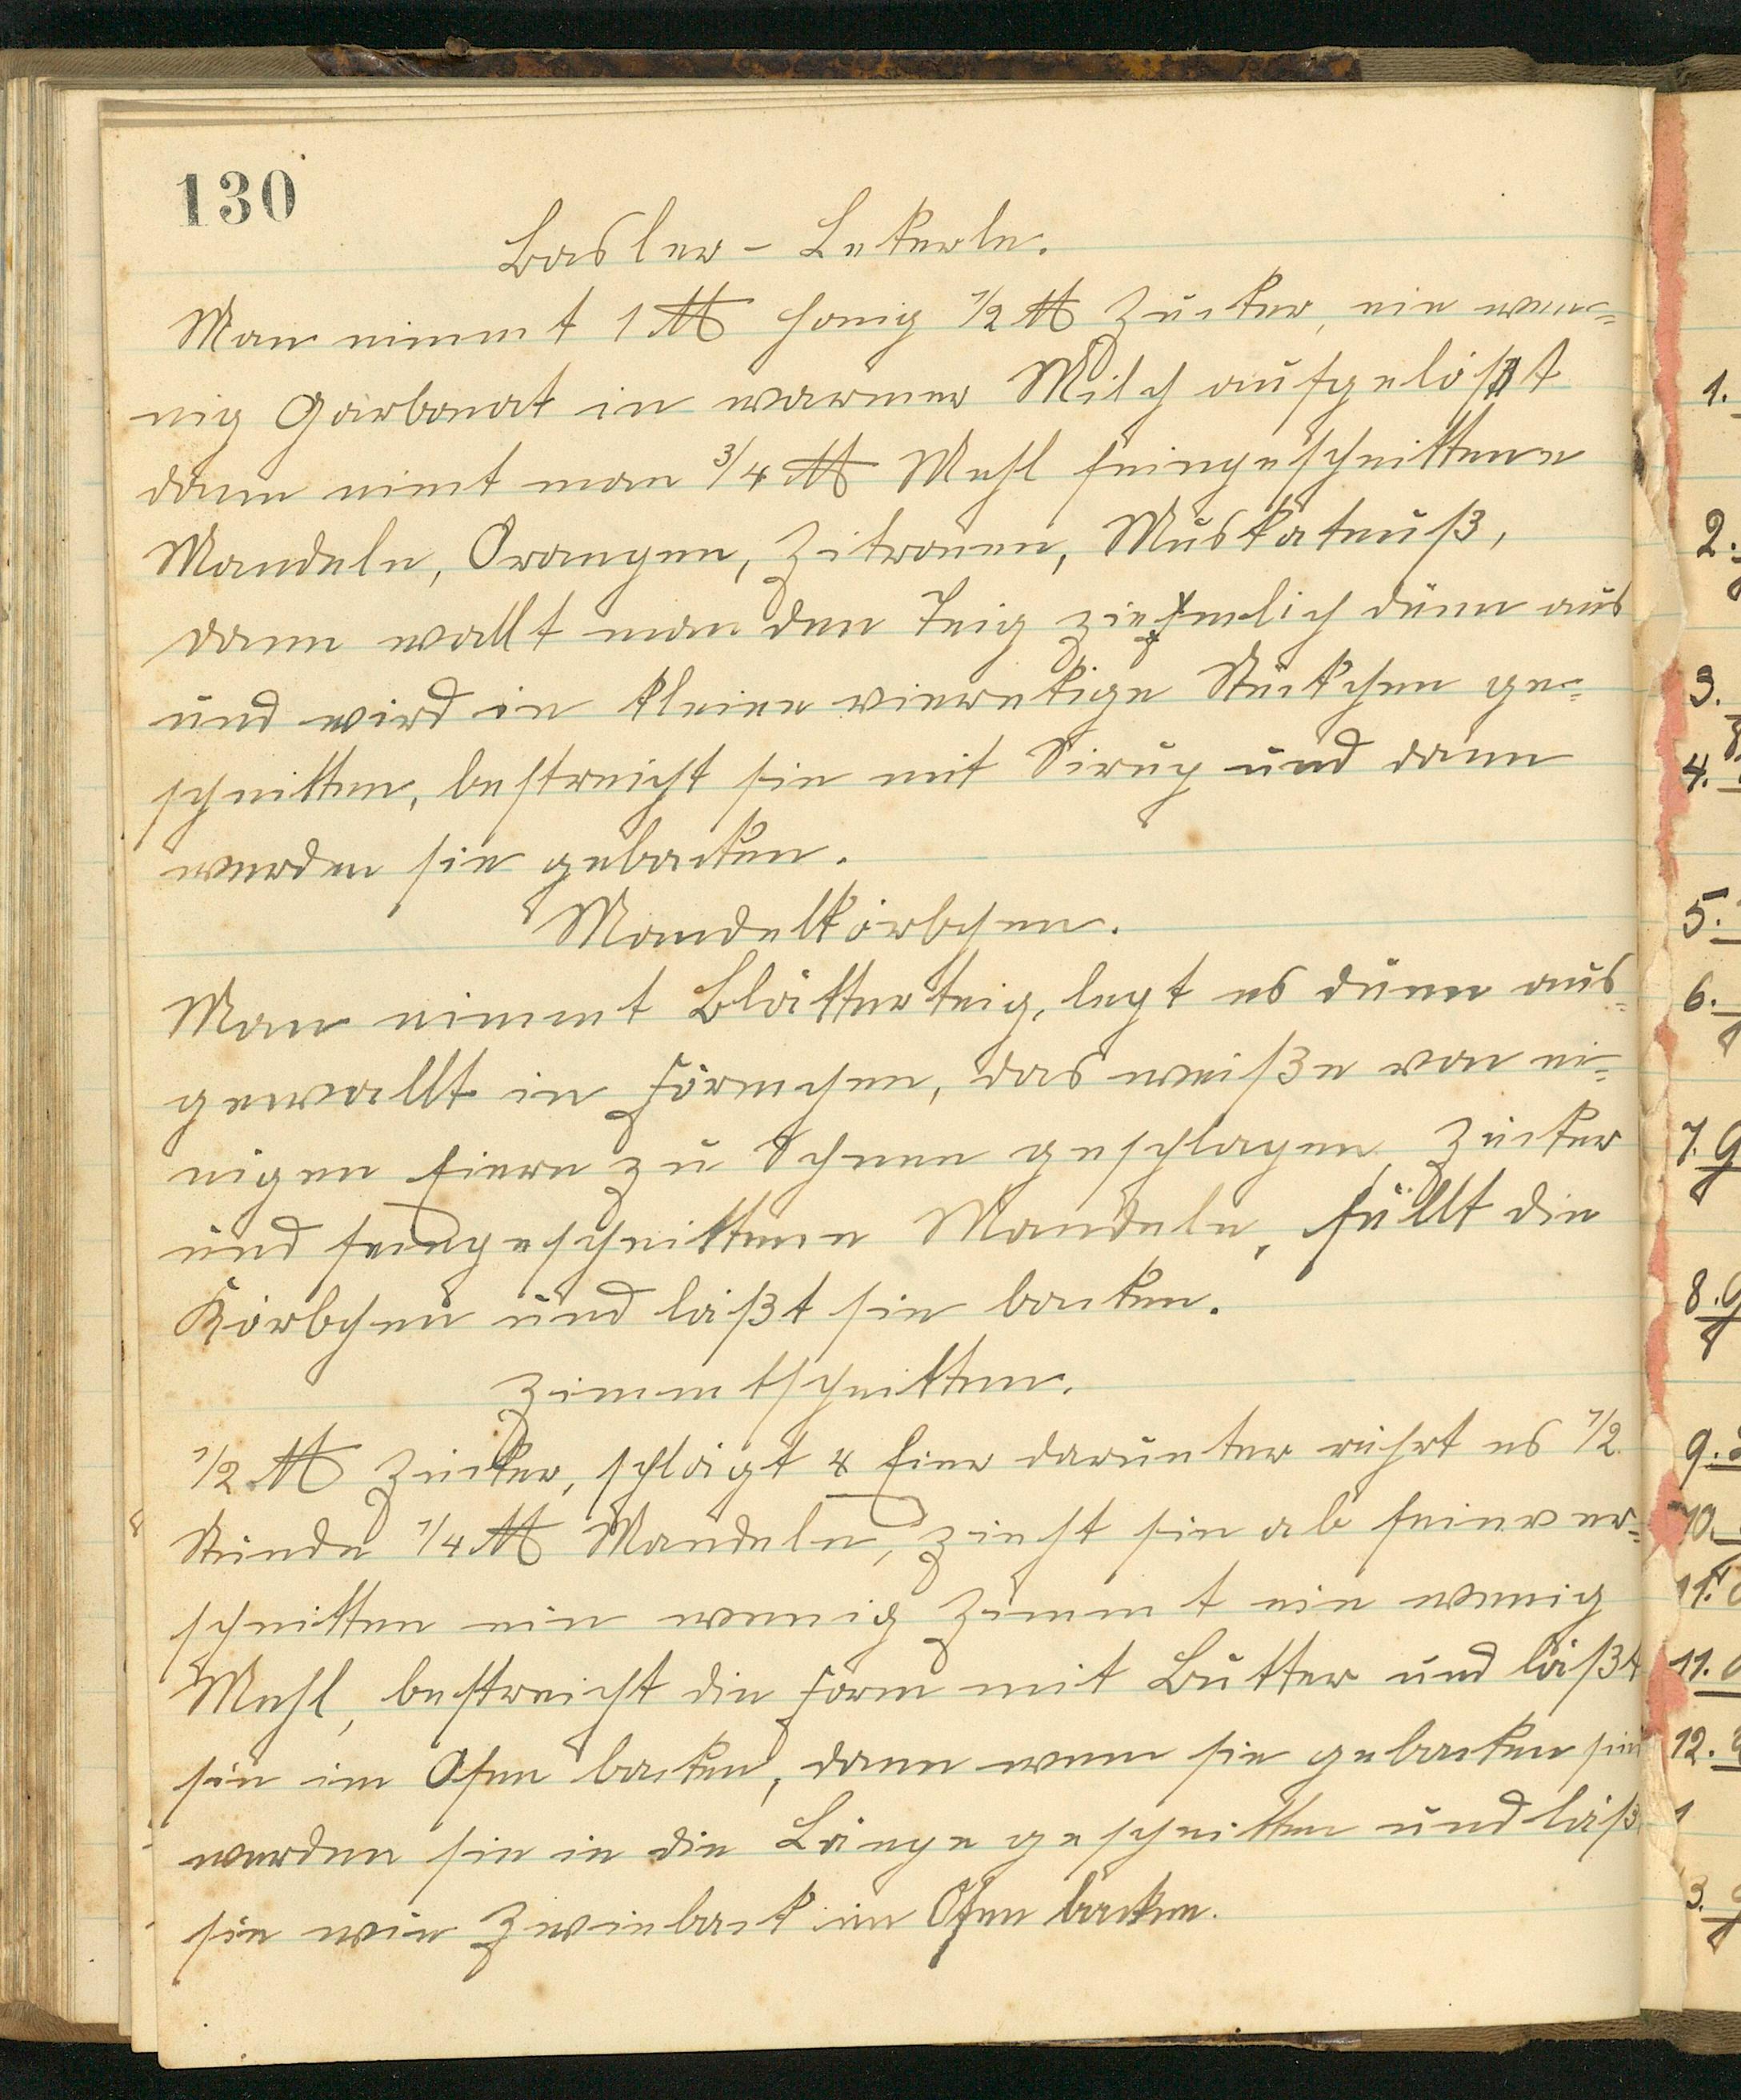 130
Basler-Lekerle.
Man nimmt 1 ℔ Honig ½ ℔ Zucker, ein wen=
nig Garbonat in warmer Milch aufgelößt
dann nimt man ¾ ℔ Mehl feingeschnittene
Mandeln, Orangen, Zitronen, Muskatnuß,
dann wallt man den Teig ziehmlich dünn aus
und wird in kleine vierekige Stückchen ge=
schnitten, bestreicht sie mit Sirup und dann
werden sie gebacken.
Mandelkörbchen.
Man nimmt Blätterteig, legt es dünn aus=
gewallt in Förmchen, das weiße von ei=
nigen Eiern zu Schnee geschlagen Zucker
und feingeschnittene Mandeln, füllt die
Körbchen und läßt sie backen.
Zimmtschnitten.
½ ℔ Zucker, schlägt 4 Eier darunter rührt es ½
Stunde ¼ ℔ Mandeln, zieht sie ab feinver=
schnitten ein wenig Zimmt ein wenig
Mehl, bestreicht die Form mit Butter und läßt
sie im Ofen backen, dann wenn sie gebacken sind
werden sie in die Länge geschnitten und läß
sie wie Zwieback im Ofen backen.
1.
2.
3.
4.
5.
6.
7.
8.
9.
10.
11.
11.
12.
1
3.